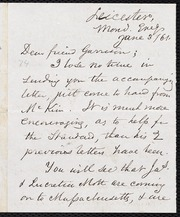 Leicester,
Mond. Eve'g
June 3/61.
Dear friend Garrison;
I lose no time in
sending you the accompany
letter, just come to hand from
McKim. It is much more
encouraging, as to help for
the Standard, than his 2
previous letters have been.
You will see that Jas.
& Lucretia Mott are coming
on to Massachusetts, & are